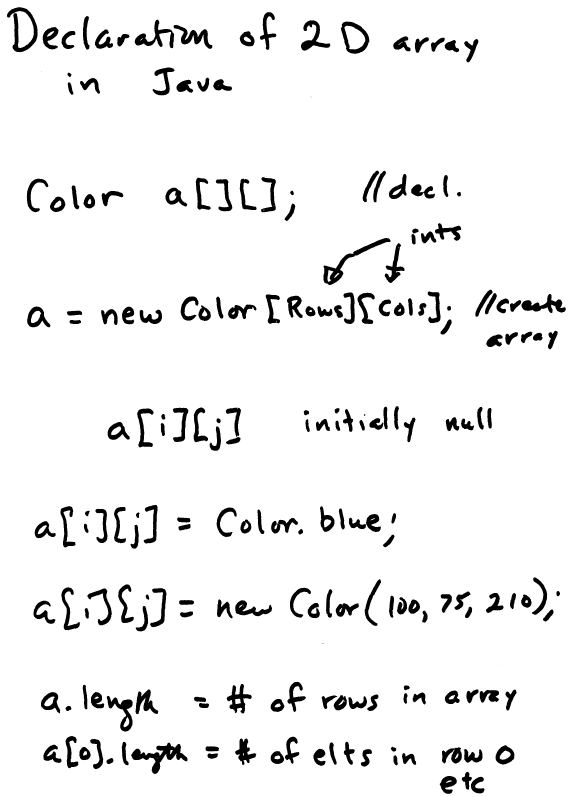 Declaration of 2D array
in Java
Color a[][]; //decl.
ints
a = new Color [Rows][Cols]; //create
array
a[i][j] initially null
a[i][j] = Color.blue;
a[i][j] = new Color(100, 75, 210);
a.length = # of rows in array
a[0].length = # of elts in row 0
etc